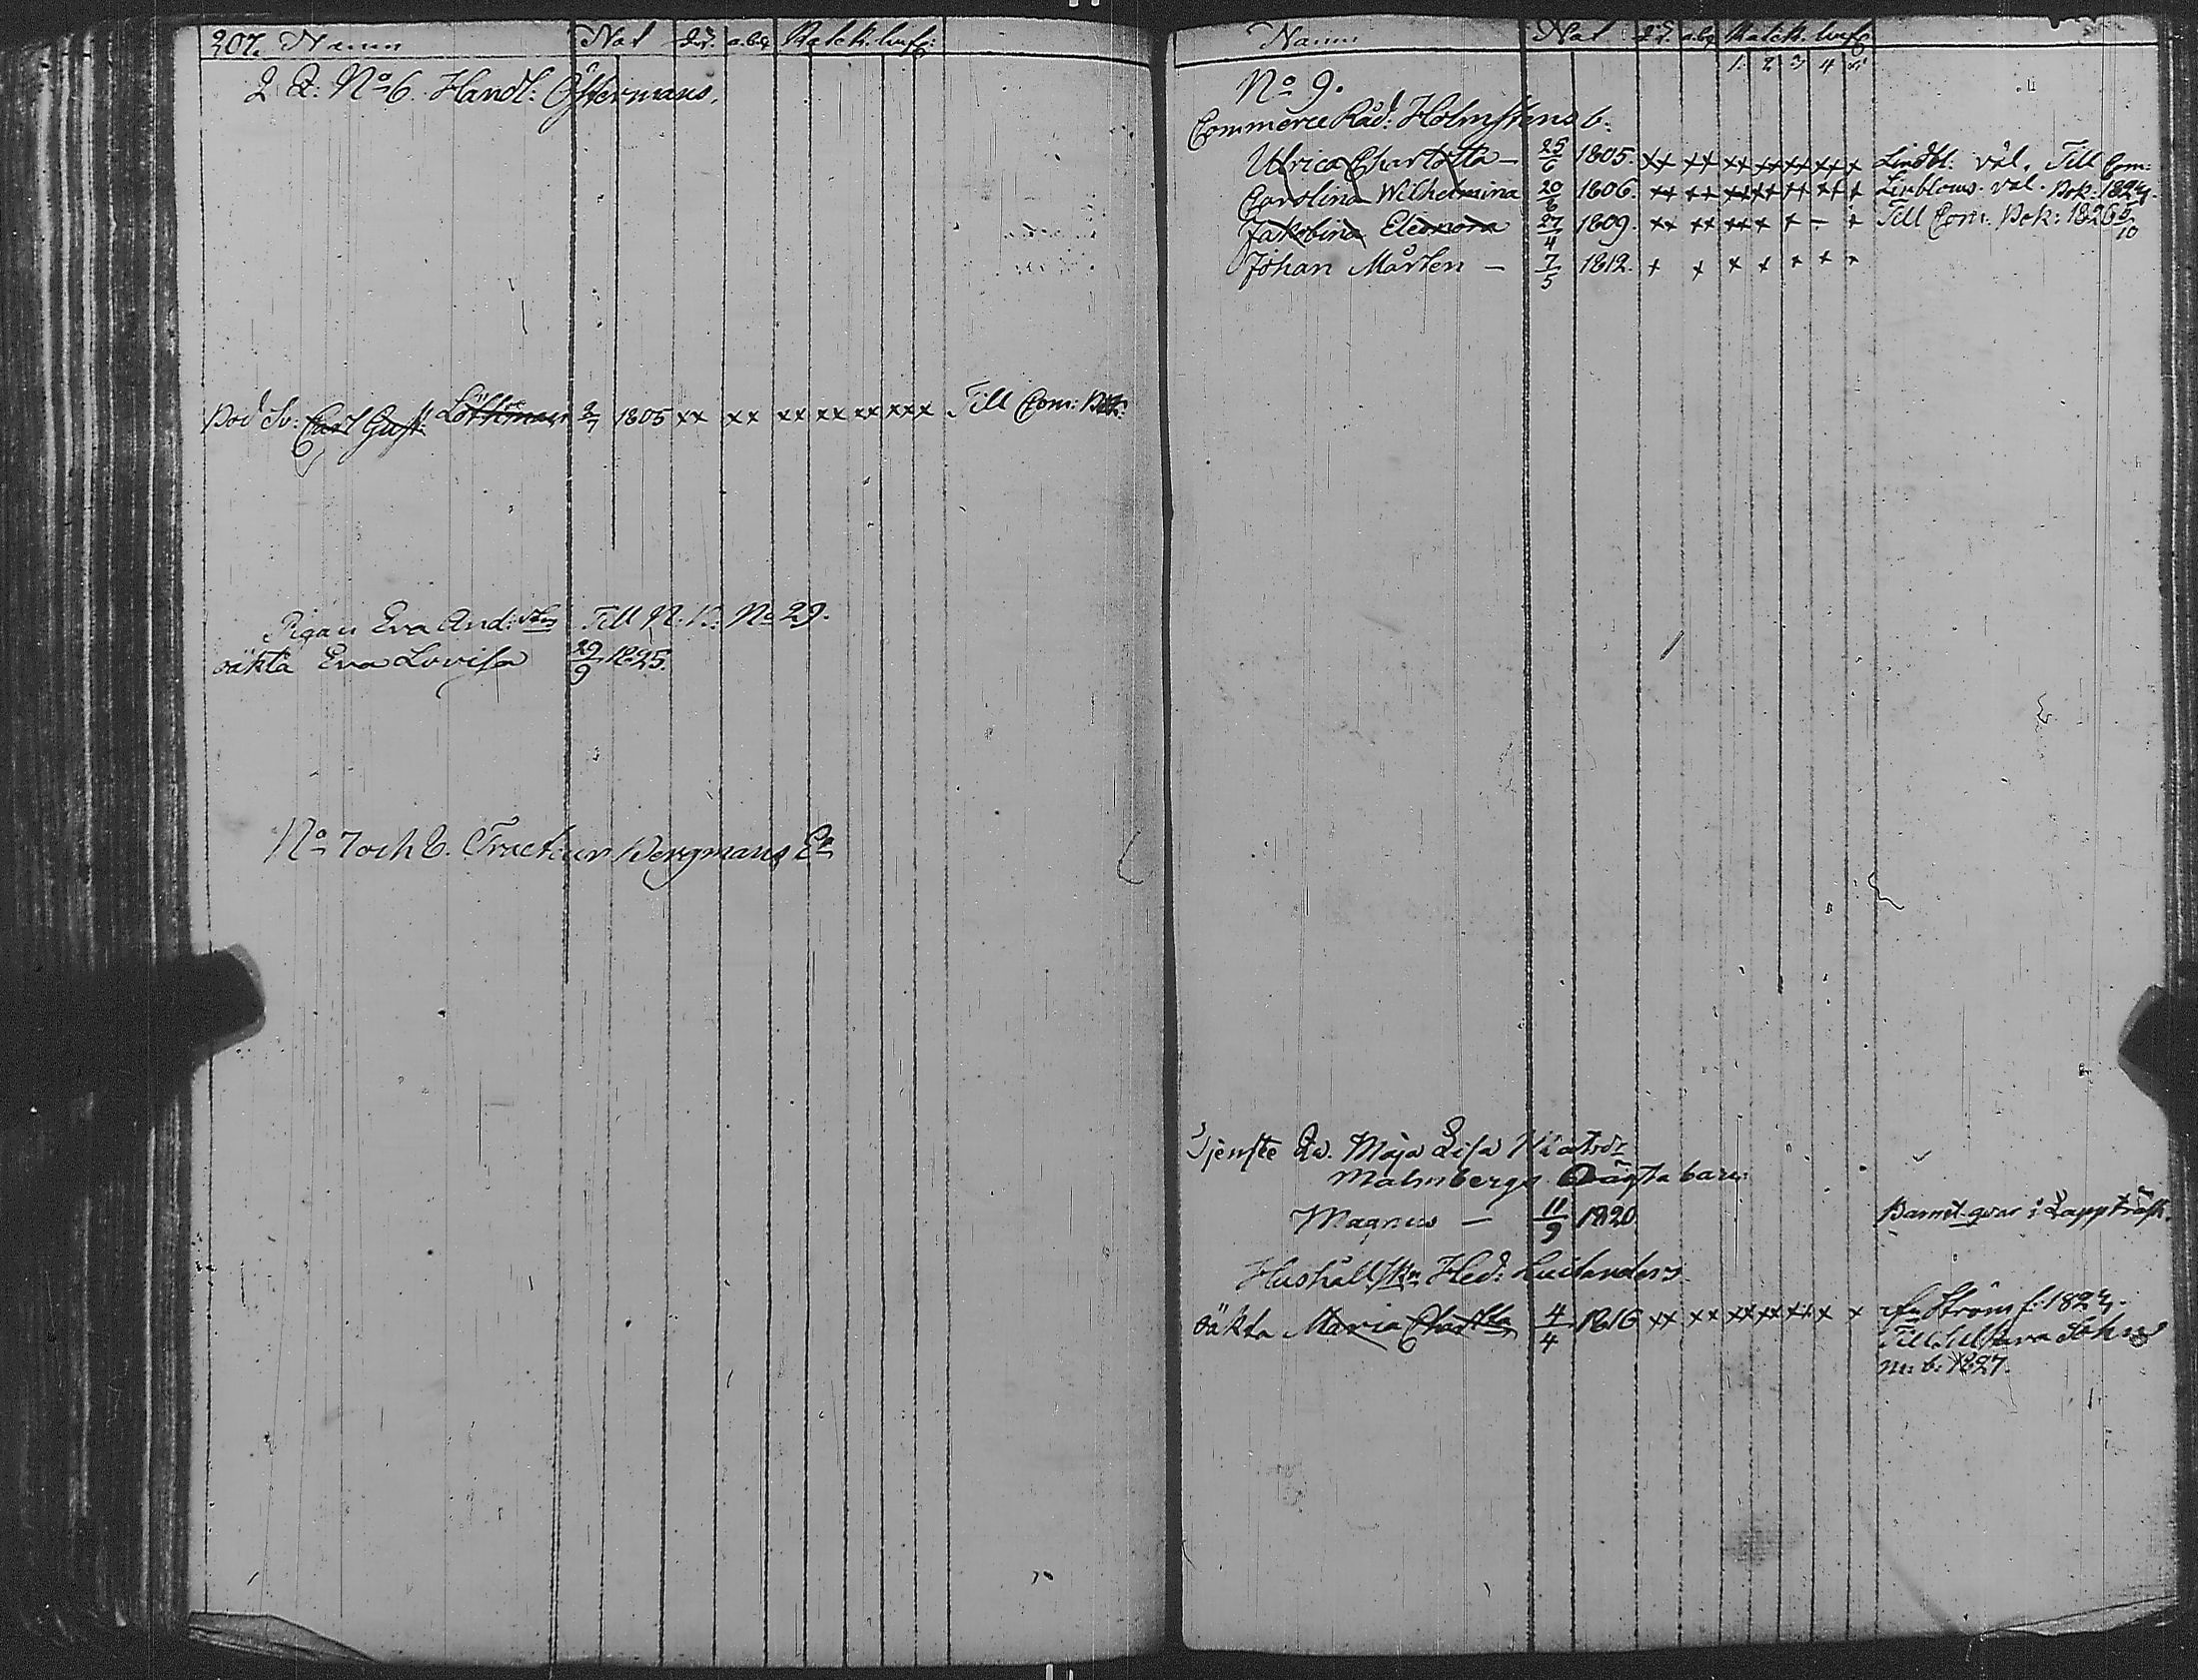 207. Namn Nat d.d. a.b.q Katek. huf:
2 Q: No 6. Handl: Östermans.
Bod Sv: Carl Gust: 2/7 1805 xx xx xx xx xx xxx Till Com: Bok:
Pigan Eva And: Till N. B: No 29.
oäkta Eva Lovisa 29/9 1825.
No 7 och 8. Tracteur Bergmans
Namn Nat d.d. a.b.q Katek. huf
1. 2 3 4 5
No 9.
Commerce Råd: Holmstens b:
Ulrica Charlotta – 25/6 1805. xx xx xx xx xx xx x Lindbl: väl. Till Com:
Carolina Wilhelmina 20/8 1806. xx xx xx xx xx xx x Linbloms. väl. Bok: 1824.
Jakobina Eleonora 27/4 1809. xx xx xx x x – x Till Com: Bok: 1826 5/10
Johan Mårten – 7/5 1812. x x x x x x x
Tjenste Qv. Maja Lisa
Malmbergs Oägta barn:
Magnus – 11/9 1820 Barnet qvar i Lappträsk.
Hushåll Hed:
oäkta Maria Charlotta 4/4 1816 xx xx xx xx xx x x Ström f: 1824.
Till
b: 1827.